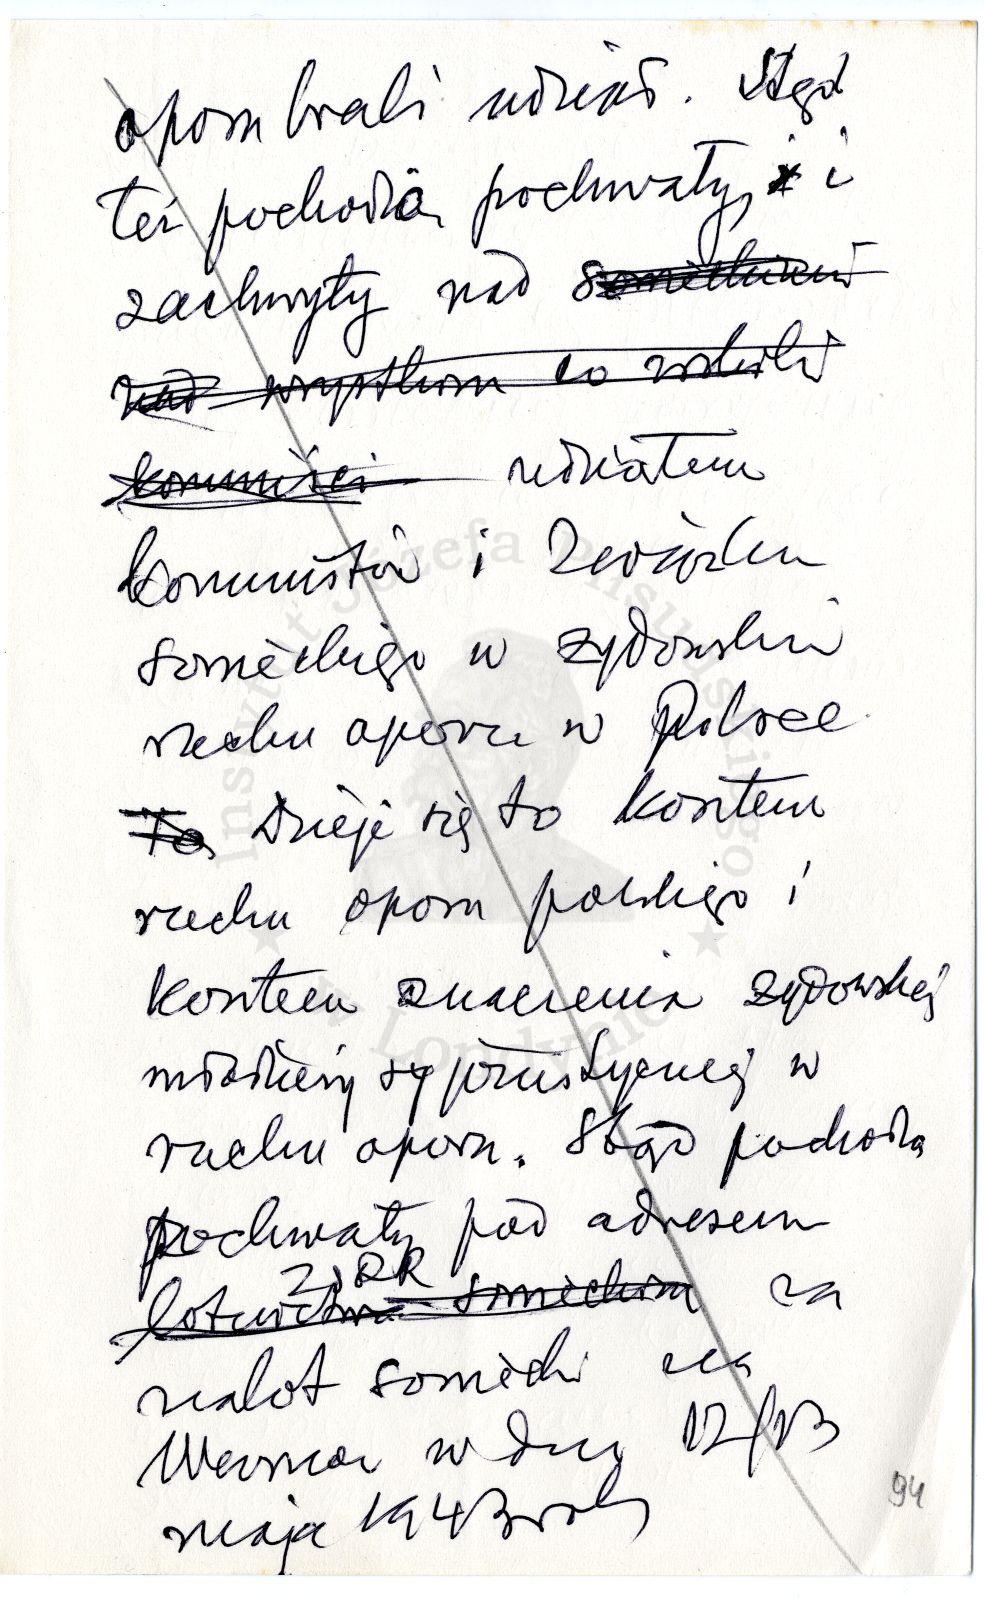 oporu brali udział. Stąd
też pochodzą pochwały, i
zachwyty nad sowieckimi
nad wszystkim co zrobili
komuniści udziałem
komunistów i Związku
sowieckiego w żydowskim
ruchu oporu w Polsce
To Dzieje się to kosztem
ruchu oporu polskiego i
kosztem znaczenia żydowskiej
młodzieży syjonistycznej w
ruchu oporu. Stąd pochodzą
pochwały pod adresem
ZSRR
lotnictwa sowieckiego za
nalot sowiecki na
Warszawę w dniu 12/13
maja 1943 roku
94
Instytut Józefa Piłsudskiego
w Londynie